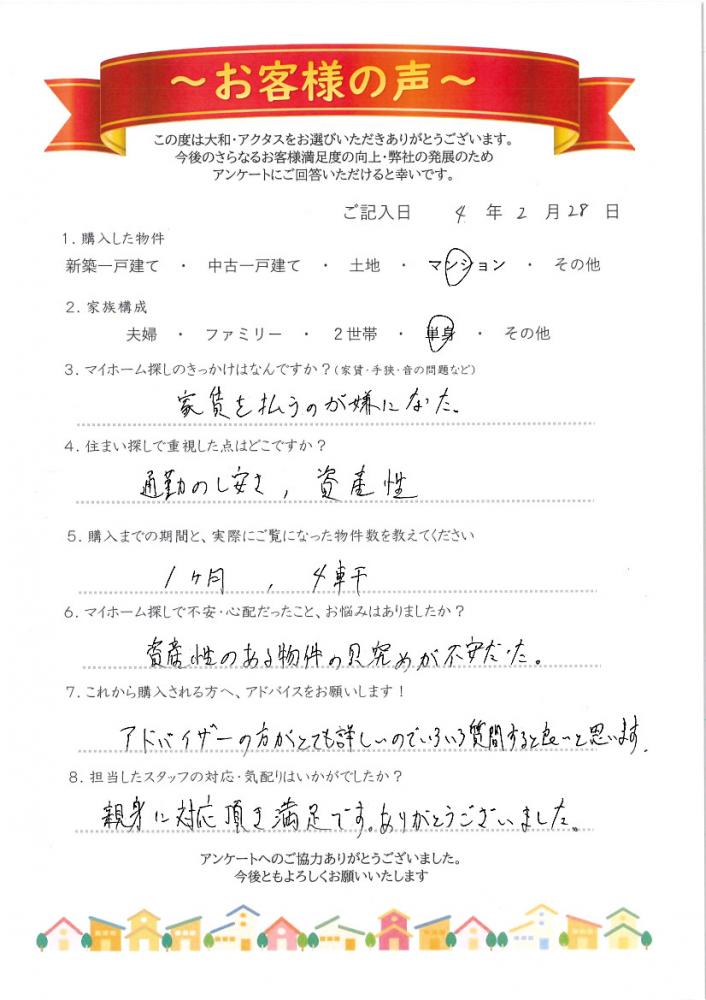 ～お客様の声～
この度は大和・アクタスをお選びいただきありがとうございます。
今後のさらなるお客様満足度の向上・弊社の発展のため
アンケートにご回答いただけると幸いです。
ご記入日 4 年 2 月 28 日
1. 購入した物件
新築一戸建て ・ 中古一戸建て ・ 土地 ・ マンション ・ その他
2. 家族構成
夫婦 ・ ファミリー ・ 2世帯 ・ 単身 ・ その他
3. マイホーム探しのきっかけはなんですか？(家賃・手狭・音の問題など)
家賃を払うのが嫌になった。
4. 住まい探しで重視した点はどこですか？
通勤のし安さ, 資産性
5. 購入までの期間と、実際にご覧になった物件数を教えてください
1ヶ月 , 4軒
6. マイホーム探しで不安・心配だったこと、お悩みはありましたか？
資産性のある物件の見究めが不安だった。
7. これから購入される方へ、アドバイスをお願いします！
アドバイザーの方がとても詳しいのでいろいろ質問すると良いと思います.
8. 担当したスタッフの対応・気配りはいかがでしたか？
親身に対応頂き満足です。ありがとうございました。
アンケートへのご協力ありがとうございました。
今後ともよろしくお願いいたします